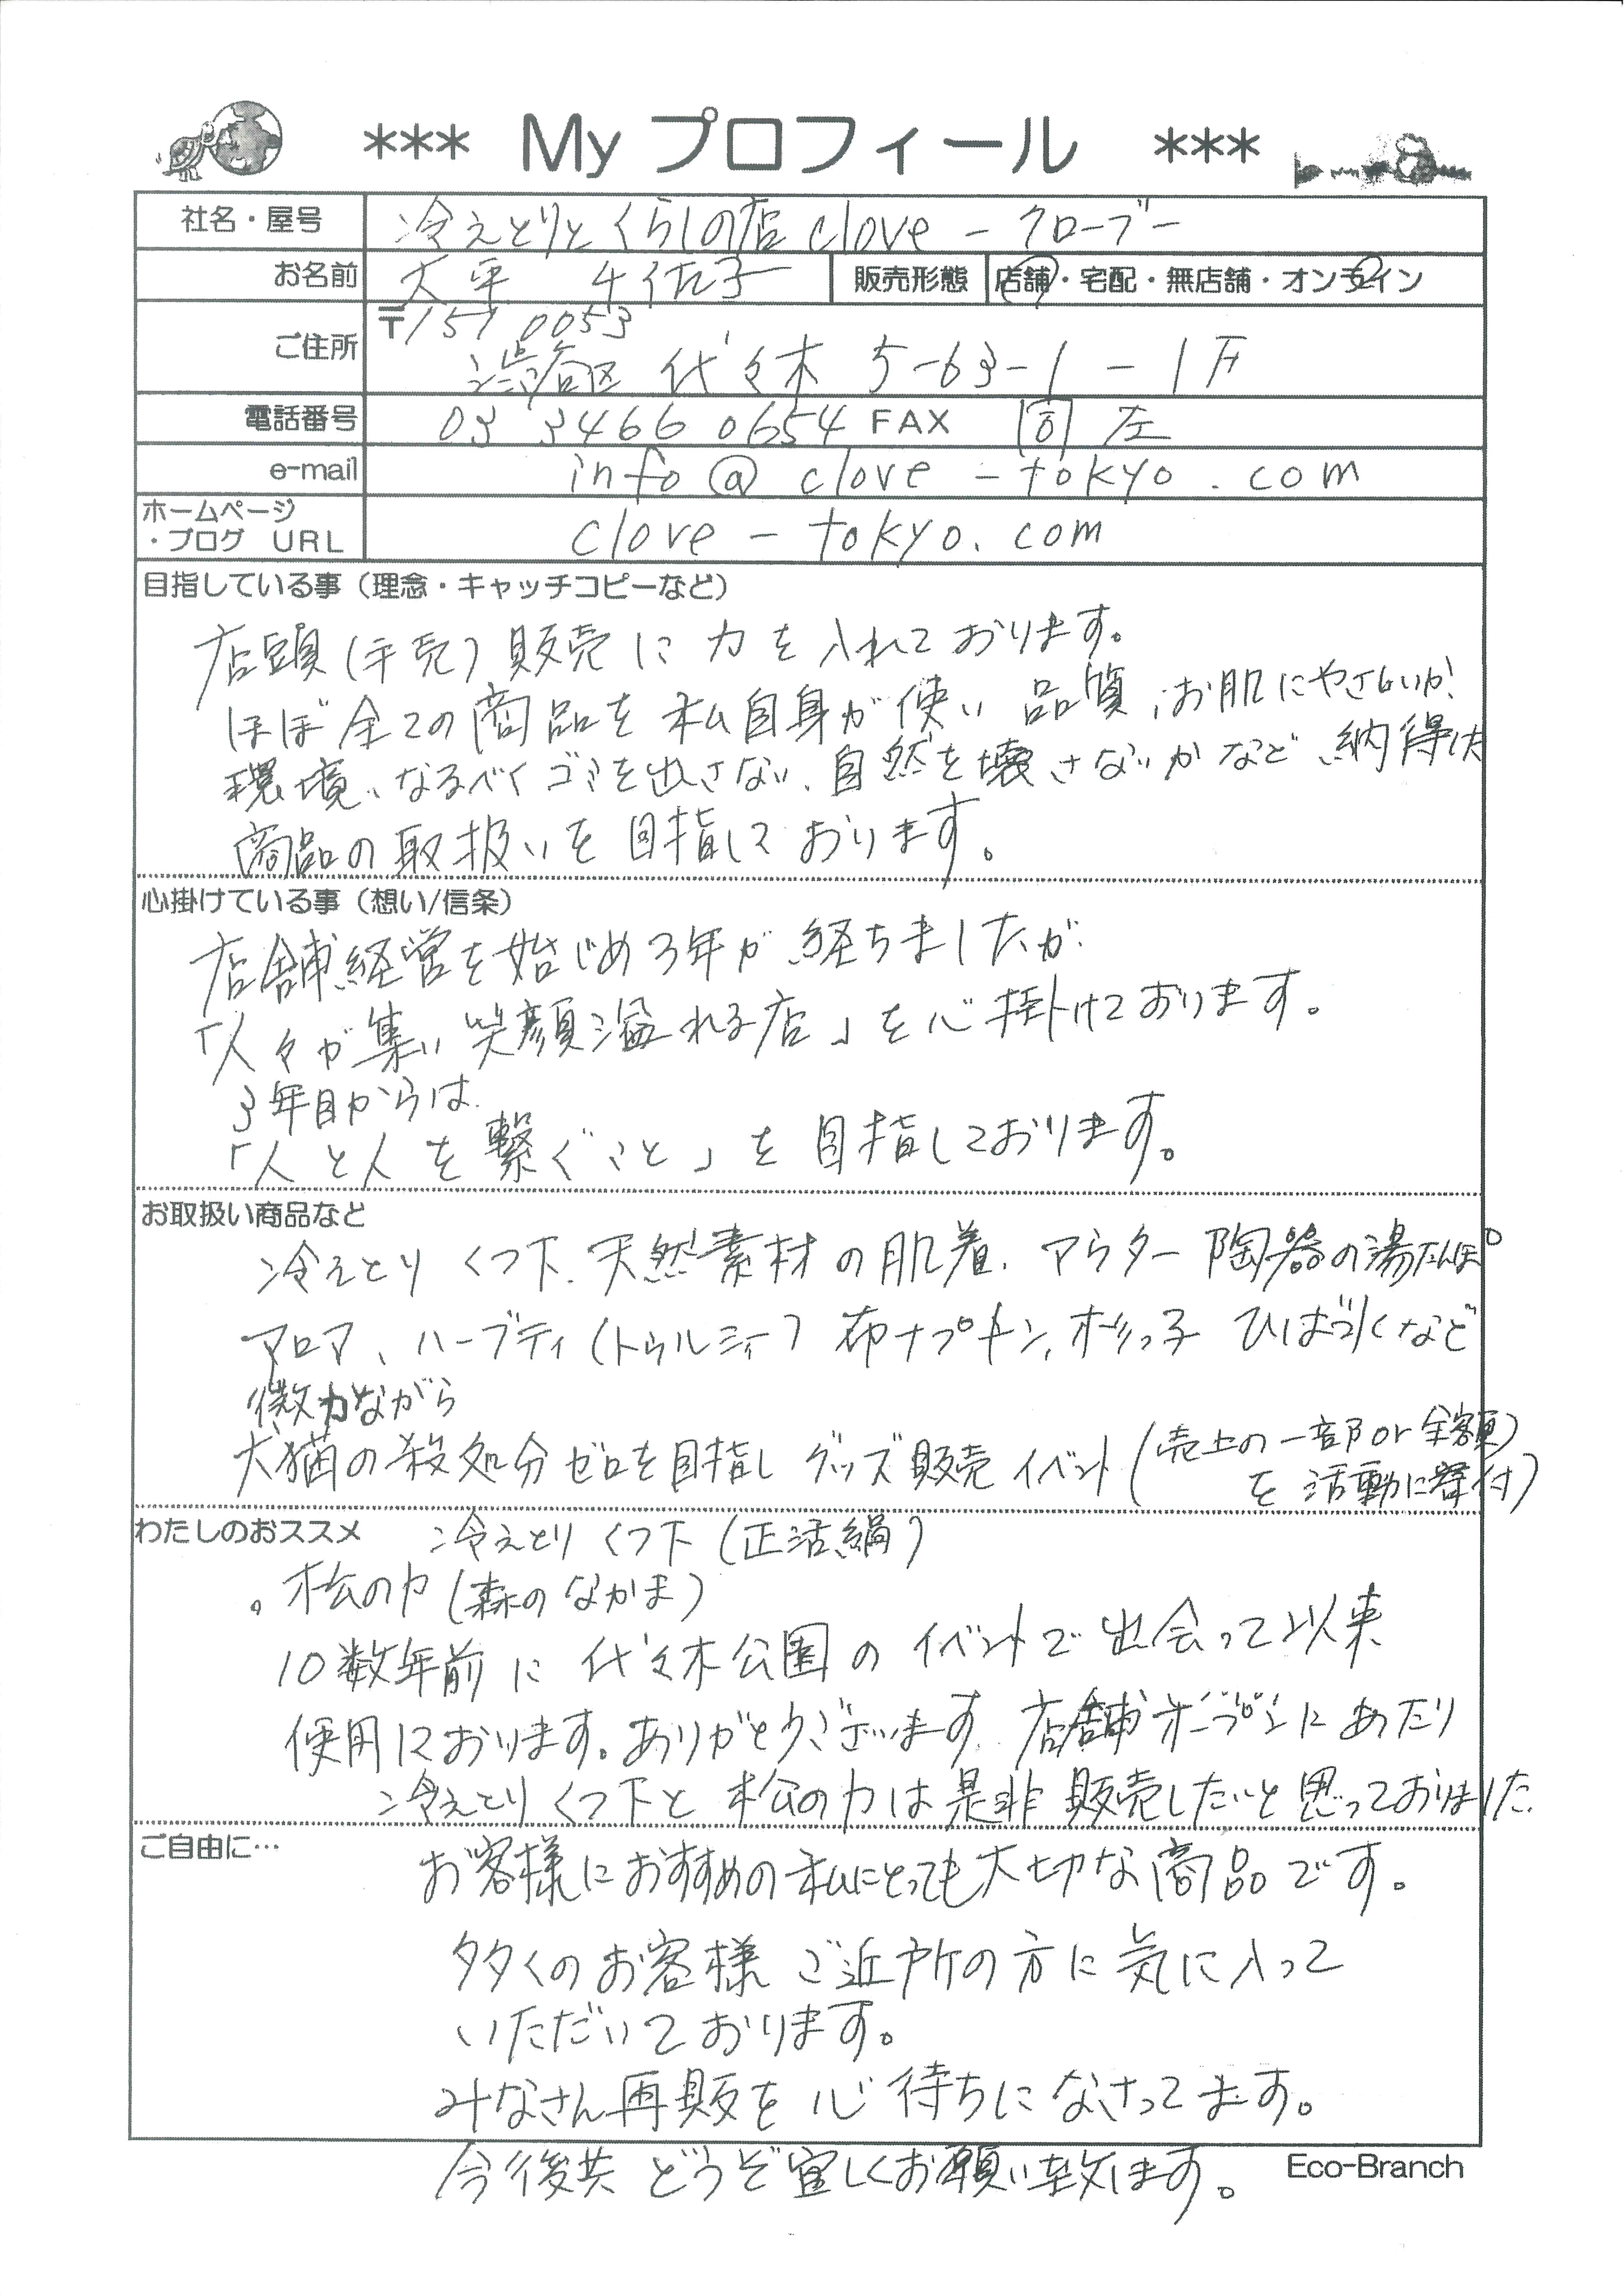 *** My プロフィール ***
社名・屋号 冷えとりとくらしの店 clove － クローブ－
お名前 大平 千佐子 販売形態 店舗・宅配・無店舗・オンライン
〒151 0053
ご住所 渋谷区 代々木 5-63-1 - 1F
電話番号 03 3466 0654 FAX 同左
e-mail info@clove-tokyo.com
ホームページ
・ブログ URL clove-tokyo.com
目指している事（理念・キャッチコピーなど）
店頭（手売）販売に力を入れております。
ほぼ全ての商品を私自身が使い 品質、お肌にやさしいか！
環境、なるべくゴミを出さない、自然を壊さないかなど、納得した
商品の取扱いを目指しております。
心掛けている事（想い/信条）
店舗経営を始じめ3年が経ちましたが、
「人々が集い笑顔溢れる店」を心掛けております。
3年目からは
「人と人を繋ぐこと」を目指しております。
お取扱い商品など
冷えとりくつ下、天然素材の肌着、アウター 陶器の湯たんぽ
アロマ、ハーブティ（トゥルシー）布ナプキン、すぎっ子 ひば爽快など
微力ながら
犬猫の殺処分ゼロを目指し グッズ販売 イベント（売上の一部or全額）
を活動に寄付）
わたしのおススメ 冷えとりくつ下（正活絹）
。松の力（森のなかま）
10数年前に代々木公園のイベントで出会って以来
使用しております。ありがとうございます。店舗オープンにあたり
冷えとりくつ下と松の力は是非販売したいと思っておりました
ご自由に… お客様におすすめの私にとっても大切な商品です。
多くのお客様 ご近所の方に気に入って
いただいております。
みなさん再販を心待ちになさってます。
今後共どうぞ宜しくお願い致します。
Eco-Branch